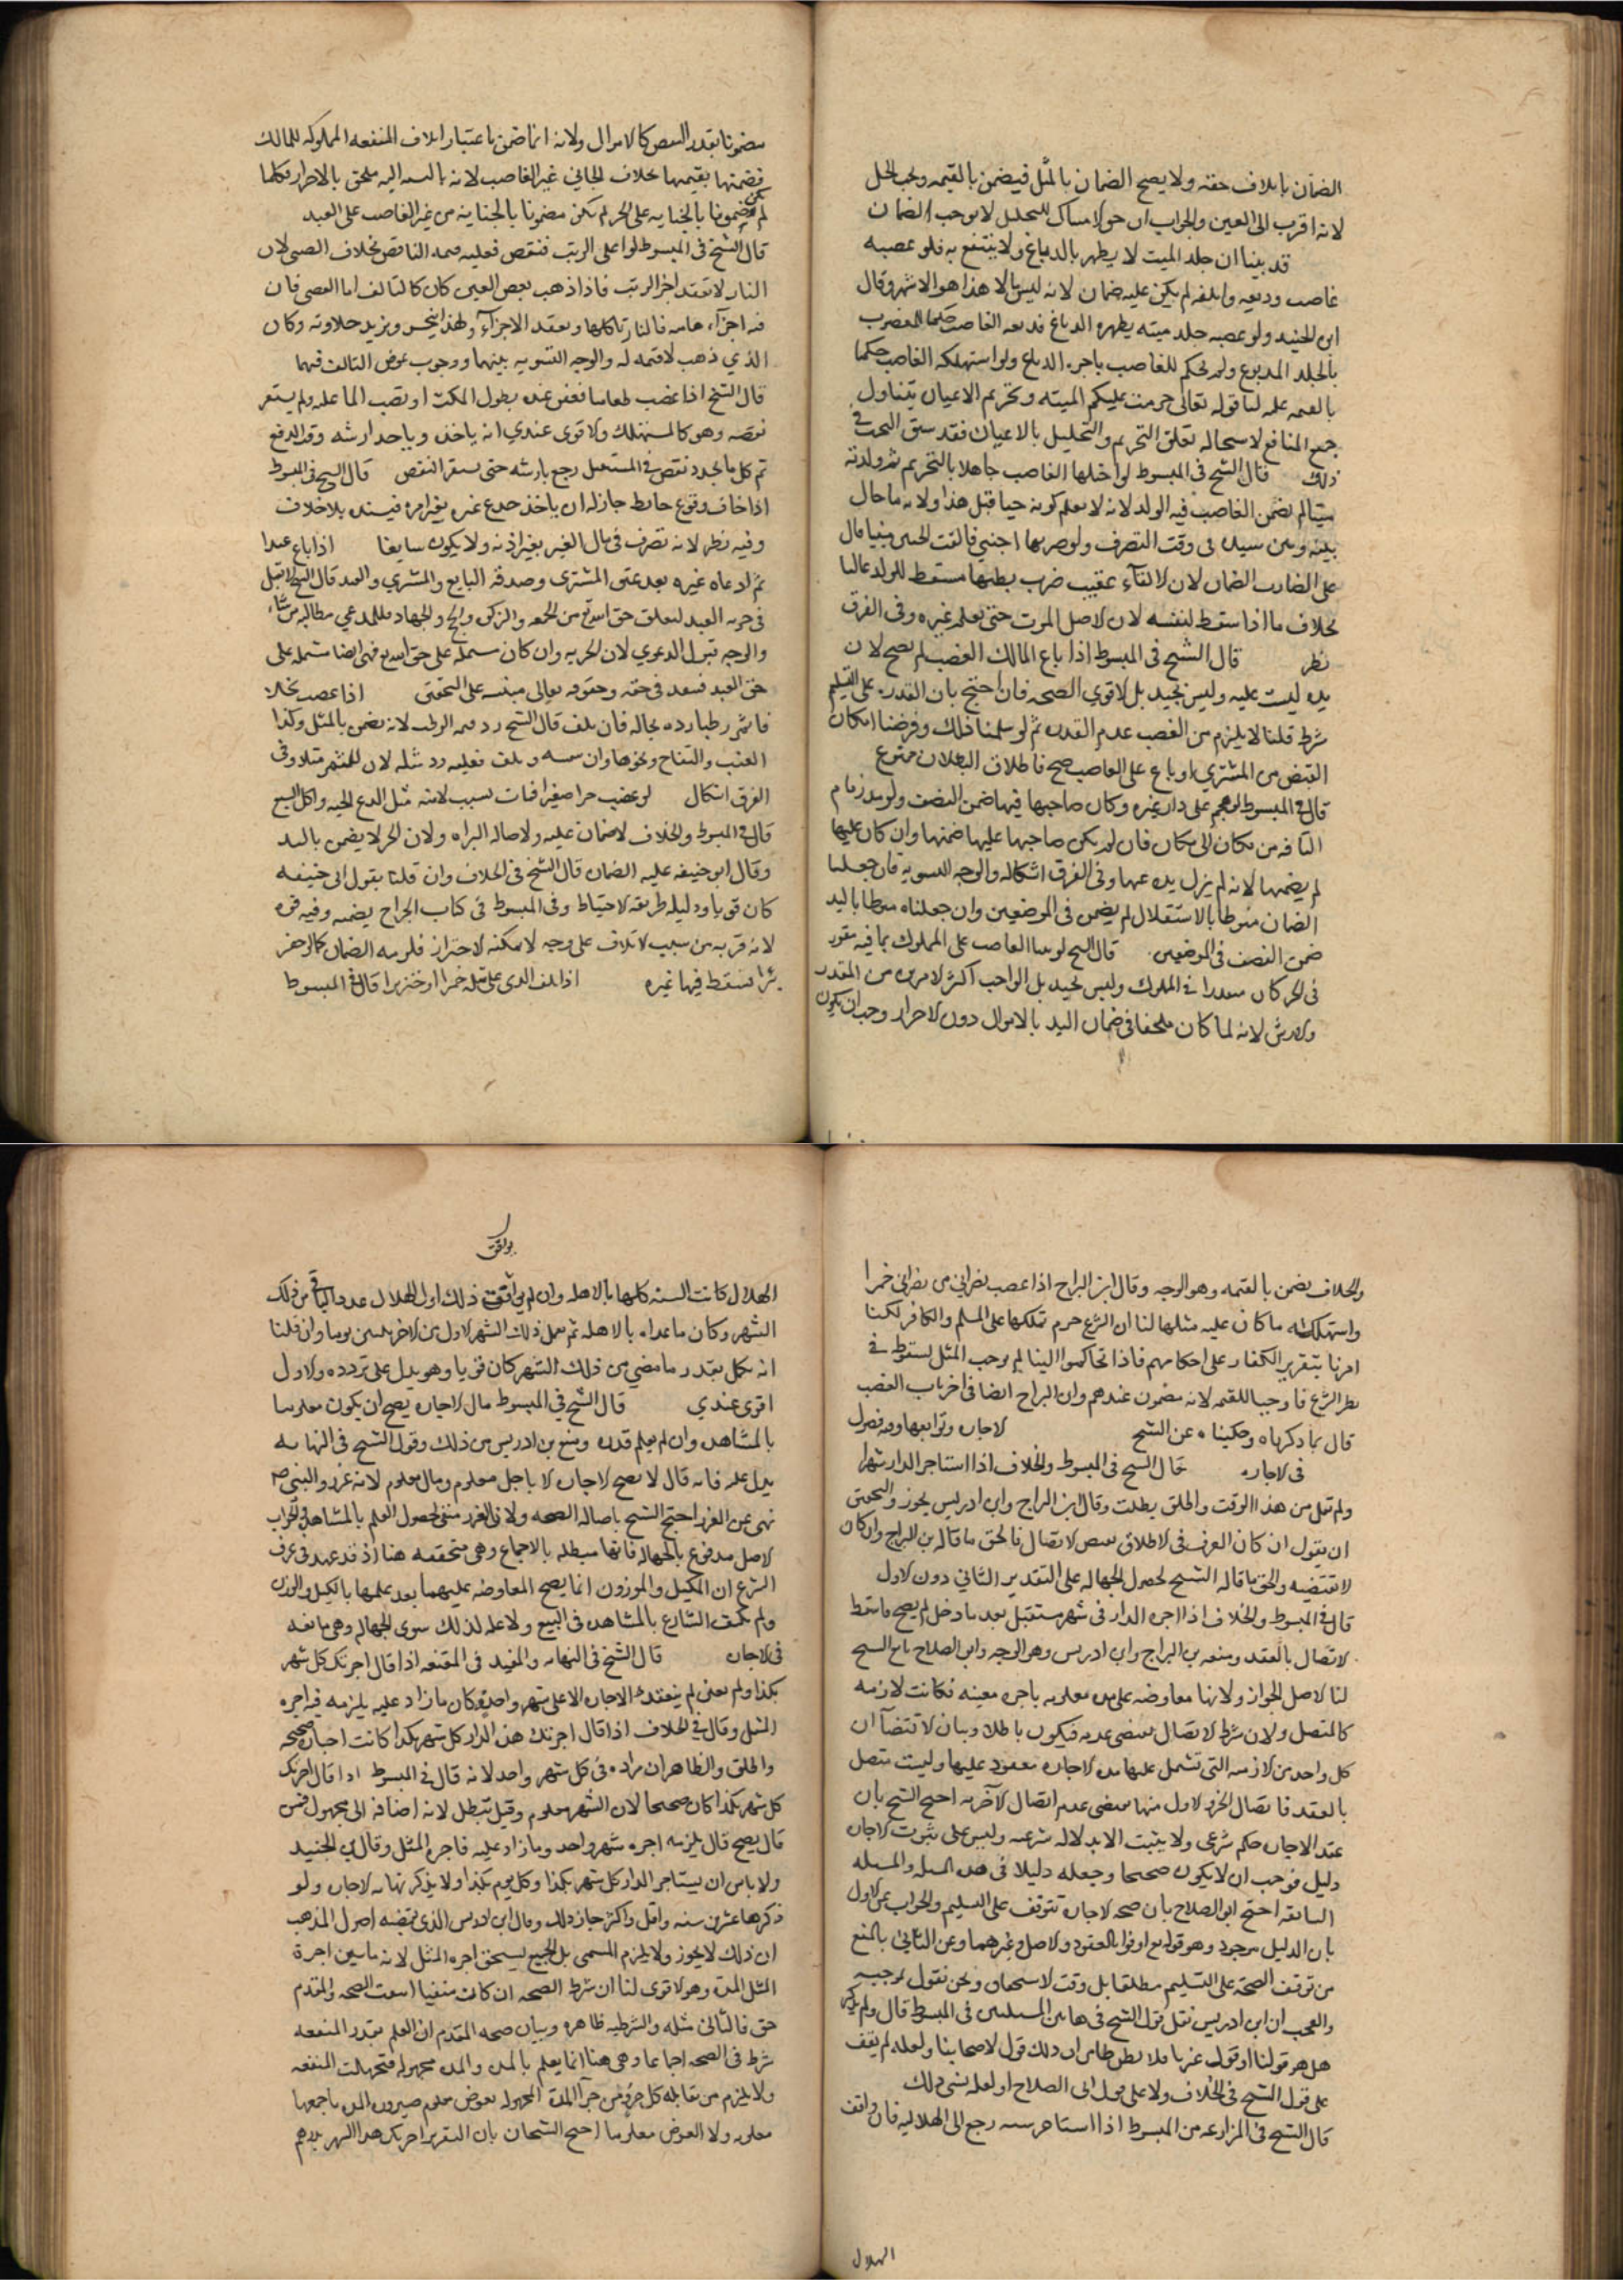 الضمان باتلاف حقه ولا يصح الضمان بالمثل فيضمن بالقيمه ويجب الحل
لانه اقرب الى العين والجواب ان جواز الامساك للتحليل لا يوجب الضمان
قد بينا ان جلد الميت لا يطهر بالدباغ ولا ينتفع به فلو غصبه
غاصب ودبغه واتلفه لم يكن عليه ضمان لانه ليس بمال هذا هو الاشهر وقال
ابن الجنيد ولو غصبه جلد ميته يطهره الدباغ فدبغه الغاصب حكما للمغصوب
بالجلد المدبوغ ولم نحكم للغاصب باجره الدباغ ولو استهلكه الغاصب حكما
بالقيمه عليه لنا قوله تعالى حرمت عليكم الميته وتحريم الاعيان يتناول
جميع المنافع لاستحاله تعلق التحريم والتحليل بالاعيان فقد سبق البحث في
ذلك قال الشيخ في المبسوط لو اخلها الغاصب جاهلا بالتحريم ثم ولدته
ميتا لم يضمن الغاصب فيه الولد لانه لا يعلم كونه حيا قبل هذا ولانه ما حال
بينه وبين سيده في وقت التصرف ولو ضربها اجنبي فالقت الجنين ميتا قال
على الضارب الضمان لان الالقاء عقيب ضرب بطنها مسقط للولد غالبا
بخلاف ما اذا سقط لنفسه لان الاصل الموت حتى يعلم غيره وفي الفرق
نظر قال الشيخ في المبسوط اذا باع المالك الغصب لم يصح لان
يده ليست عليه وليس بجيد بل الاقوى الصحه فان احتج بان القدره على التسليم
شرط قلنا لا يلزم من الغصب عدم القدره ثم لو سلمنا ذلك وفرضنا امكان
القبض من المشتري او باع على الغاصب صح فاطلاق البطلان ممنوع
قال في المبسوط لو هجم على دار غيره وكان صاحبها فيها ضمن النصف ولو مد زمام
الناقه من مكان الى مكان فان لم يكن صاحبها عليها ضمنها وان كان عليها
لم يضمنها لانه لم يزل يده عنها وفي الفرق اشكال والوجه التسويه فان جعلنا
الضمان منوطا بالاستقلال لم يضمن في الموضعين وان جعلناه منوطا باليد
ضمن النصف في الموضعين قال الشيخ لو جنا الغاصب على المملوك بما فيه مقدر
في الحر كان مقدرا في المملوك وليس بجيد بل الواجب اكثر الامرين من المقدر
والارش لانه لما كان ملحقا في ضمان اليد بالاموال دون الاحرار وجب ان يكون
مضمونا بقدر النقص كالاموال ولانه انما ضمن باعتبار اتلاف المنفعه المملوكه للمالك
فضمنها بقيمتها بخلاف الجاني غير الغاصب لانه بالنسبه اليه ملحق بالاحرار فكلما
لم يكن مضمونا بالجنايه على الحر لم يكن مضمونا بالجنايه من غير الغاصب على العبد
قال الشيخ في المبسوط لو اغلى الزيت فنقص فعليه قيمه الناقص بخلاف العصير لان
النار لا تعقد اجزا الزيت فاذا ذهب بعض العين كان كالتالف اما العصير فان
فيه اجزآء مائيه فالنار تاكلها وتعقد الاجزآء ولهذا يثخن ويزيد حلاوته وكان
الذي ذهب لا قيمه له والوجه التسويه بينهما ووجوب عوض التالف فيهما
قال الشيخ اذا غصب طعاما فعفن عنده بطول المكث او بصب الما عليه ولم يستقر
نقصه وهو كالمستهلك والاقوى عندي انه ياخذه وياخذ ارشه وقت الدفع
ثم كل ما تجدد نقص في المستقبل رجع بارشه حتى يستقر النقص قال الشيخ في المبسوط
اذا خاف وقوع حايط جاز له ان ياخذ جذع غيره بغير امره فيسنده بلا خلاف
وفيه نظر لانه تصرف في مال الغير بغير اذنه ولا يكون سايغا اذا باع عبدا
ثم ادعاه غيره بعد عتق المشتري وصدقه البايع والمشتري والعبد قال الشيخ لا تقبل
في حريه العبد لتعلق حق الله تع من الجمعه والزكوه والحج والجهاد فللمدعي مطالبه من شاء
والوجه قبول الدعوي لان الحريه وان كان مشتمله على حق الله تع فهي ايضا مشتمله على
حق العبد فينفذ في حقه وحقوقه تعالى مبنيه على التحقيق اذا غصب نخلا
فاثمر رطبا رده بحاله فان تلف قال الشيخ رد قيمه الرطب لانه يضمن بالمثل وكذا
العنب والتفاح ونحوها وان شمسه وتلف فعليه رد مثله لان للمثمر مثلا وفي
الفرق اشكال لو غصب حرا صغيرا فمات بسبب لامنه مثل لدغ الحيه واكل السبع
قال في المبسوط والخلاف لا ضمان عليه ولاصاله البراه ولان الحر لا يضمن باليد
وقال ابو حنيفه عليه الضمان قال الشيخ في الخلاف وان قلنا بقول ابى حنيفه
كان قويا ودليله طريقه الاحتياط وفي المبسوط في كتاب الجراح يضمنه وفيه قوه
لانه قربه من سبب الاتلاف على وجه لا يمكنه الاحتراز فلزمه الضمان كما لو حفر
بئرا فسقط فيها غيره اذا اتلف الذمي على مثله خمرا او خنزيرا قال في المبسوط
والخلاف يضمن بالقيمه وهو الوجه وقال ابن البراج اذا غصب نصراني من نصراني خمرا
واستهلكه ما كان عليه مثلها لنا ان الشرع حرم تملكها على المسلم والكافر لكنا
امرنا بتقرير الكفار على احكامهم فاذا تحاكموا الينا لم يوجب المثل لسقوطه في
نظر الشرع فاوجبنا للقيمه لانه مضمون عندهم وابن البراج ايضا في اخر باب الغصب
قال بما ذكرناه وحكيناه عن الشيخ لاجاره وتوابعها وفيه فصول
في الاجاره قال الشيخ في المبسوط والخلاف اذا استاجر الدار شهرا
ولم تقل من هذا الوقت والحلق بطلت وقال ابن البراج وابن ادريس يجوز والتحقيق
ان يقول ان كان العرف في الاطلاق يقتضي الاتصال فالحق ما قاله بن البراج وان كان
لا يقتضيه والحق ما قاله الشيخ لحصول الجهاله على التقدير الثاني دون الاول
قال في المبسوط والخلاف اذا اجره الدار في شهر مستقبل بعد ما دخل لم يصح فاشترط
الاتصال بالعقد ومنعه بن البراج وابن ادريس وهو الوجه وابن الصلاح تابع الشيخ
لنا الاصل الجواز ولانها معاوضه على مده معلومه باجره معينه فكانت لازمه
كالمتصل ولان شرط الاتصال يقتضي عدمه فيكون باطلا وبيان لاقتضآ ان
كل واحد من الازمنه التي تشتمل عليها مده الاجاره معقود عليها وليست متصل
بالعقد فاتصال الجزء الاول منها يقتضي عدم اتصال الاخريه احتج الشيخ بان
عقد الاجاره حكم شرعي ولا يثبت الا بدلاله شرعيه وليس على ثبوت الاجاره
دليل فوجب ان لا يكون صحيحا وجعله دليلا في هذه المسله والمسله
السابقه احتج ابو الصلاح بان صحه الاجاره تتوقف على التسليم والجواب عن الاول
بان الدليل موجود وهو قوله تع اوفوا بالعقود والاصل وغيرهما وعن الثاني بالمنع
من توقف الصحه على التسليم مطلقا بل وقت الاستحقاق ونحن نقول بموجبه
والعجب ان ابن ادريس نقل قول الشيخ في هاتين المسئلتين في المبسوط قال ولم يذكر
هل هو قولنا او قول غيرنا فلا يظن ظان ان ذلك قول لاصحابنا ولعله لم يقف
على قول الشيخ في الخلاف ولا على قول ابى الصلاح او لعله نسي ذلك
قال الشيخ في المزارعه من المبسوط اذا استاجر سنه رجع الى الهلاليه فان وافق
الهلال
يوافق
الهلال كانت السنه كلها بالاهله وان لم يوافق ذلك اول الهلال عد ما بقى من ذلك
الشهر وكان ما عداه بالاهله ثم يكمل ذلك الشهر الاول من الاخر ثلثين يوما وان قلنا
انه يكمل بقدر ما مضى من ذلك الشهر كان قويا وهو يدل على تردده والاول
اقوى عندي قال الشيخ في المبسوط مال الاجاره يصح ان يكون معلوما
بالمشاهده وان لم يعلم قدره ومنع بن ادريس من ذلك وقول الشيخ في النهايه
يدل عليه فانه قال لا تصح الاجاره الا باجل معلوم ومال معلوم لانه غرر والنبي ص
نهى عن الغرر احتج الشيخ باصاله الصحه ولان الغرر منفي لحصول العلم بالمشاهده والجواب
الاصل مدفوع بالجهاله فانها مبطله بالاجماع وهي متحققه هنا اذ قد عهد في عرف
الشرع ان المكيل والموزون انما يصح المعاوضه عليهما بعد علمها بالكيل والوزن
ولم يكتف الشارع بالمشاهده في البيع ولا عله لذلك سوى الجهاله وهي مانعه
في الاجاره قال الشيخ في النهايه والمفيد في المقنعه اذا قال اجرتك كل شهر
بكذا ولم يعين لم ينعقد الاجاره الا على شهر واحد وكان ما زاد عليه يلزمه فيه اجره
المثل وقال في الخلاف اذا قال اجرتك هذه الدار كل شهر بكذا كانت اجاره صحيحه
والحلق والظاهر ان مراده في كل شهر واحد لانه قال في المبسوط اذا قال اجرتك
كل شهر بكذا كان صحيحا لان الشهر معلوم وقيل تبطل لانه اضافه الى مجهول فمن
قال يصح قال يلزمه اجره شهر واحد وما زاد عليه فاجره المثل وقال بن الجنيد
ولا باس ان يستاجر الدار كل شهر بكذا وكل يوم بكذا ولا يذكر نهايه الاجاره ولو
ذكرها عشرين سنه واقل واكثر جاز ذلك وقال ابن ادريس الذي يقتضيه اصول المذهب
ان ذلك لا يجوز ولا يلزم المسمى بل الجميع يستحق اجره المثل لانه ما بين اجرة
المثل المده وهو الاقوى لنا ان شرط الصحه ان كان منفيا انتفت الصحه والمقدم
حق فالتالى مثله والشرطيه ظاهره وبيان صحه المقدم ان العلم بقدر المنفعه
شرط في الصحه اجماعا وهي هنا انما يعلم بالمده والمده مجهوله فتجهلت المنفعه
ولا يلزم من مقابله كل جزء من جزآ المدة المجهوله بعوض معلوم صيروره المده باجمعها
معلومه ولا العوض معلوما احتج الشيخان بان التقدير اجرتك هذا الشهر بدرهم